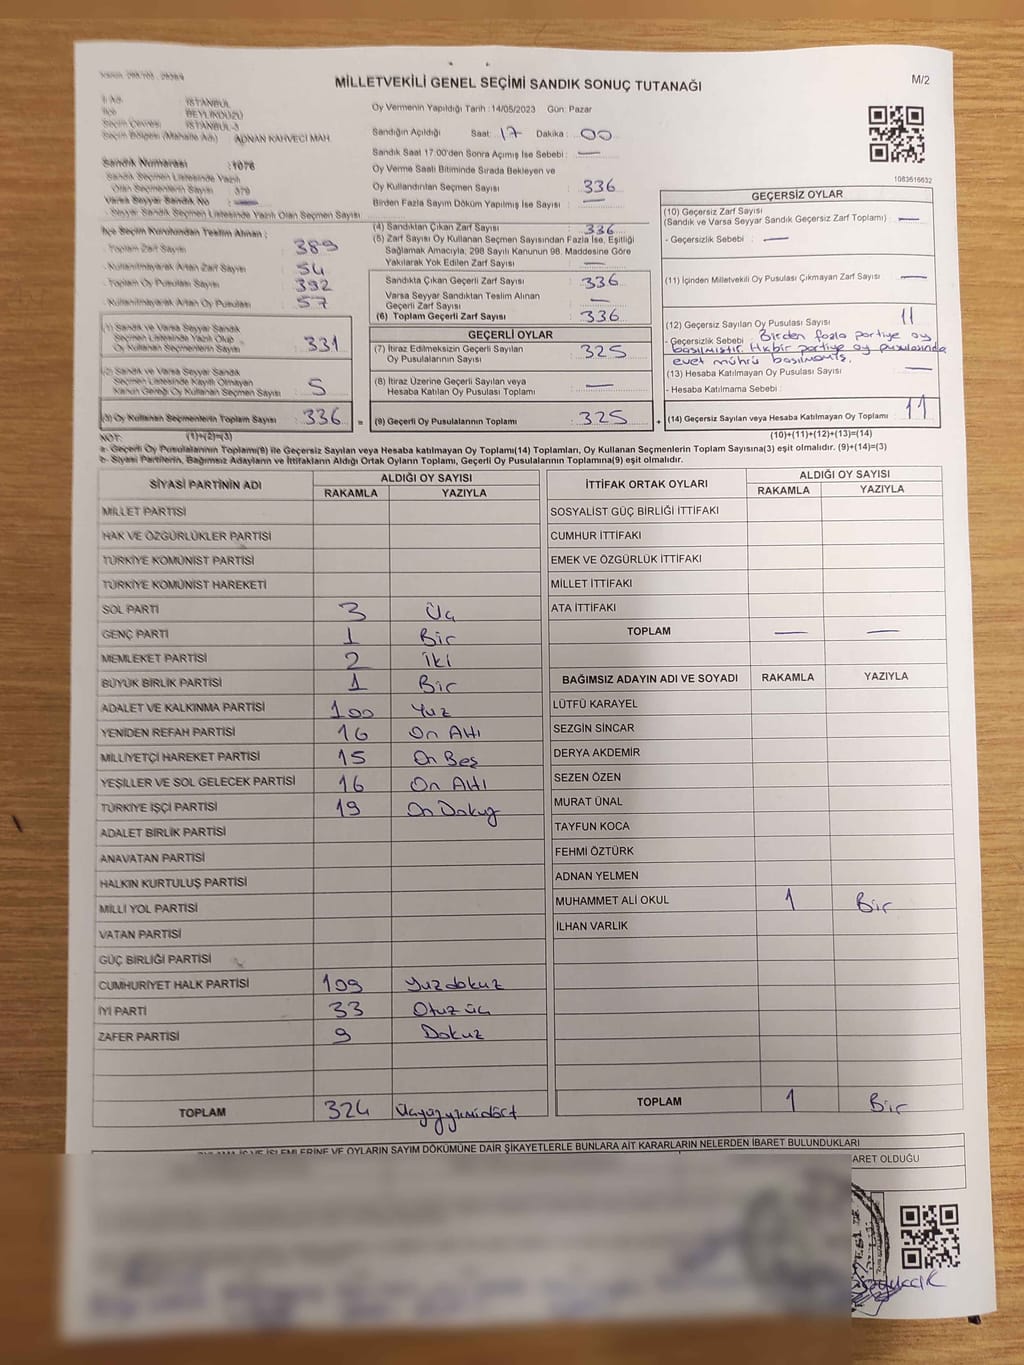 MİLLETVEKİLİ GENEL SEÇİMİ SANDIK SONUÇ TUTANAĞI
M/2
İli Adı : İSTANBUL
İlçe : BEYLİKDÜZÜ
Seçim Çevresi : İSTANBUL-3
Seçim Bölgesi (Mahalle Adı) : ADNAN KAHVECİ MAH.
Sandık Numarası : 1076
Sandık Seçmen Listesinde Yazılı
Olan Seçmenlerin Sayısı : 379
Varsa Seyyar Sandık No : —
- Seyyar Sandık Seçmen Listesinde Yazılı Olan Seçmen Sayısı
Oy Vermenin Yapıldığı Tarih : 14/05/2023 Gün: Pazar
Sandığın Açıldığı Saat: 17 Dakika : 00
Sandık Saat 17.00'den Sonra Açımış İse Sebebi : —
Oy Verme Saati Bitiminde Sırada Bekleyen ve
Oy Kullandırılan Seçmen Sayısı : 336
Birden Fazla Sayım Döküm Yapılmış İse Sayısı : —
1083616632
İlçe Seçim Kurulundan Teslim Alınan ;
- Toplam Zarf Sayısı : 389
- Kullanılmayarak Artan Zarf Sayısı : 54
- Toplam Oy Pusulası Sayısı : 392
- Kullanılmayarak Artan Oy Pusulası : 57
(1) Sandık ve Varsa Seyyar Sandık
Seçmen Listesinde Yazılı Olup
Oy Kullanan Seçmenlerin Sayısı : 331
(2) Sandık ve Varsa Seyyar Sandık
Seçmen Listesinde Kayıtlı Olmayan
Kanun Gereği Oy Kullanan Seçmen Sayısı : 5
(3) Oy Kullanan Seçmenlerin Toplam Sayısı : 336 =
(4) Sandıktan Çıkan Zarf Sayısı : 336
(5) Zarf Sayısı Oy Kullanan Seçmen Sayısından Fazla İse, Eşitliği
Sağlamak Amacıyla, 298 Sayılı Kanunun 98. Maddesine Göre
Yakılarak Yok Edilen Zarf Sayısı : —
Sandıkta Çıkan Geçerli Zarf Sayısı : 336
Varsa Seyyar Sandıktan Teslim Alınan
Geçerli Zarf Sayısı : —
(6) Toplam Geçerli Zarf Sayısı : 336
GEÇERLİ OYLAR
(7) İtiraz Edilmeksizin Geçerli Sayılan
Oy Pusulalarının Sayısı : 325
(8) İtiraz Üzerine Geçerli Sayılan veya
Hesaba Katılan Oy Pusulası Toplamı : —
(9) Geçerli Oy Pusulalarının Toplamı : 325 +
GEÇERSİZ OYLAR
(10) Geçersiz Zarf Sayısı
(Sandık ve Varsa Seyyar Sandık Geçersiz Zarf Toplamı) : —
- Geçersizlik Sebebi : —
(11) İçinden Milletvekili Oy Pusulası Çıkmayan Zarf Sayısı : —
(12) Geçersiz Sayılan Oy Pusulası Sayısı : 11
- Geçersizlik Sebebi : Birden fazla partiye oy
basılmıştır. Hiçbir partiye oy pusulasında
evet mührü basılmamış.
(13) Hesaba Katılmayan Oy Pusulası Sayısı : —
- Hesaba Katılmama Sebebi :
(14) Geçersiz Sayılan veya Hesaba Katılmayan Oy Toplamı : 11
NOT: (1)+(2)=(3)
(10)+(11)+(12)+(13)=(14)
a- Geçerli Oy Pusulalarının Toplamı(9) ile Geçersiz Sayılan veya Hesaba katılmayan Oy Toplamları(14) Toplamları, Oy Kullanan Seçmenlerin Toplam Sayısına(3) eşit olmalıdır. (9)+(14)=(3)
b- Siyasi Partilerin, Bağımsız Adayların ve İttifakların Aldığı Ortak Oyların Toplamı, Geçerli Oy Pusulalarının Toplamına(9) eşit olmalıdır.
SİYASİ PARTİNİN ADI ALDIĞI OY SAYISI
RAKAMLA YAZIYLA
MİLLET PARTİSİ
HAK VE ÖZGÜRLÜKLER PARTİSİ
TÜRKİYE KOMÜNİST PARTİSİ
TÜRKİYE KOMÜNİST HAREKETİ
SOL PARTİ 3 Üç
GENÇ PARTİ 1 Bir
MEMLEKET PARTİSİ 2 İki
BÜYÜK BİRLİK PARTİSİ 1 Bir
ADALET VE KALKINMA PARTİSİ 100 Yuz
YENİDEN REFAH PARTİSİ 16 On Altı
MİLLİYETÇİ HAREKET PARTİSİ 15 On Beş
YEŞİLLER VE SOL GELECEK PARTİSİ 16 On Altı
TÜRKİYE İŞÇİ PARTİSİ 19 On Dokuz
ADALET BİRLİK PARTİSİ
ANAVATAN PARTİSİ
HALKIN KURTULUŞ PARTİSİ
MİLLİ YOL PARTİSİ
VATAN PARTİSİ
GÜÇ BİRLİĞİ PARTİSİ
CUMHURİYET HALK PARTİSİ 109 Yuzdokuz
İYİ PARTİ 33 Otuz üç
ZAFER PARTİSİ 9 Dokuz
TOPLAM 324 Üçyüzyirmidört
İTTİFAK ORTAK OYLARI ALDIĞI OY SAYISI
RAKAMLA YAZIYLA
SOSYALİST GÜÇ BİRLİĞİ İTTİFAKI
CUMHUR İTTİFAKI
EMEK VE ÖZGÜRLÜK İTTİFAKI
MİLLET İTTİFAKI
ATA İTTİFAKI
TOPLAM — —
BAĞIMSIZ ADAYIN ADI VE SOYADI RAKAMLA YAZIYLA
LÜTFÜ KARAYEL
SEZGİN SİNCAR
DERYA AKDEMİR
SEZEN ÖZEN
MURAT ÜNAL
TAYFUN KOCA
FEHMİ ÖZTÜRK
ADNAN YELMEN
MUHAMMET ALİ OKUL 1 Bir
İLHAN VARLIK
TOPLAM 1 Bir
İŞLEMLERİNE VE OYLARIN SAYIM DÖKÜMÜNE DAİR ŞİKAYETLERLE BUNLARA AİT KARARLARIN NELERDEN İBARET BULUNDUKLARI
ARET OLDUĞU